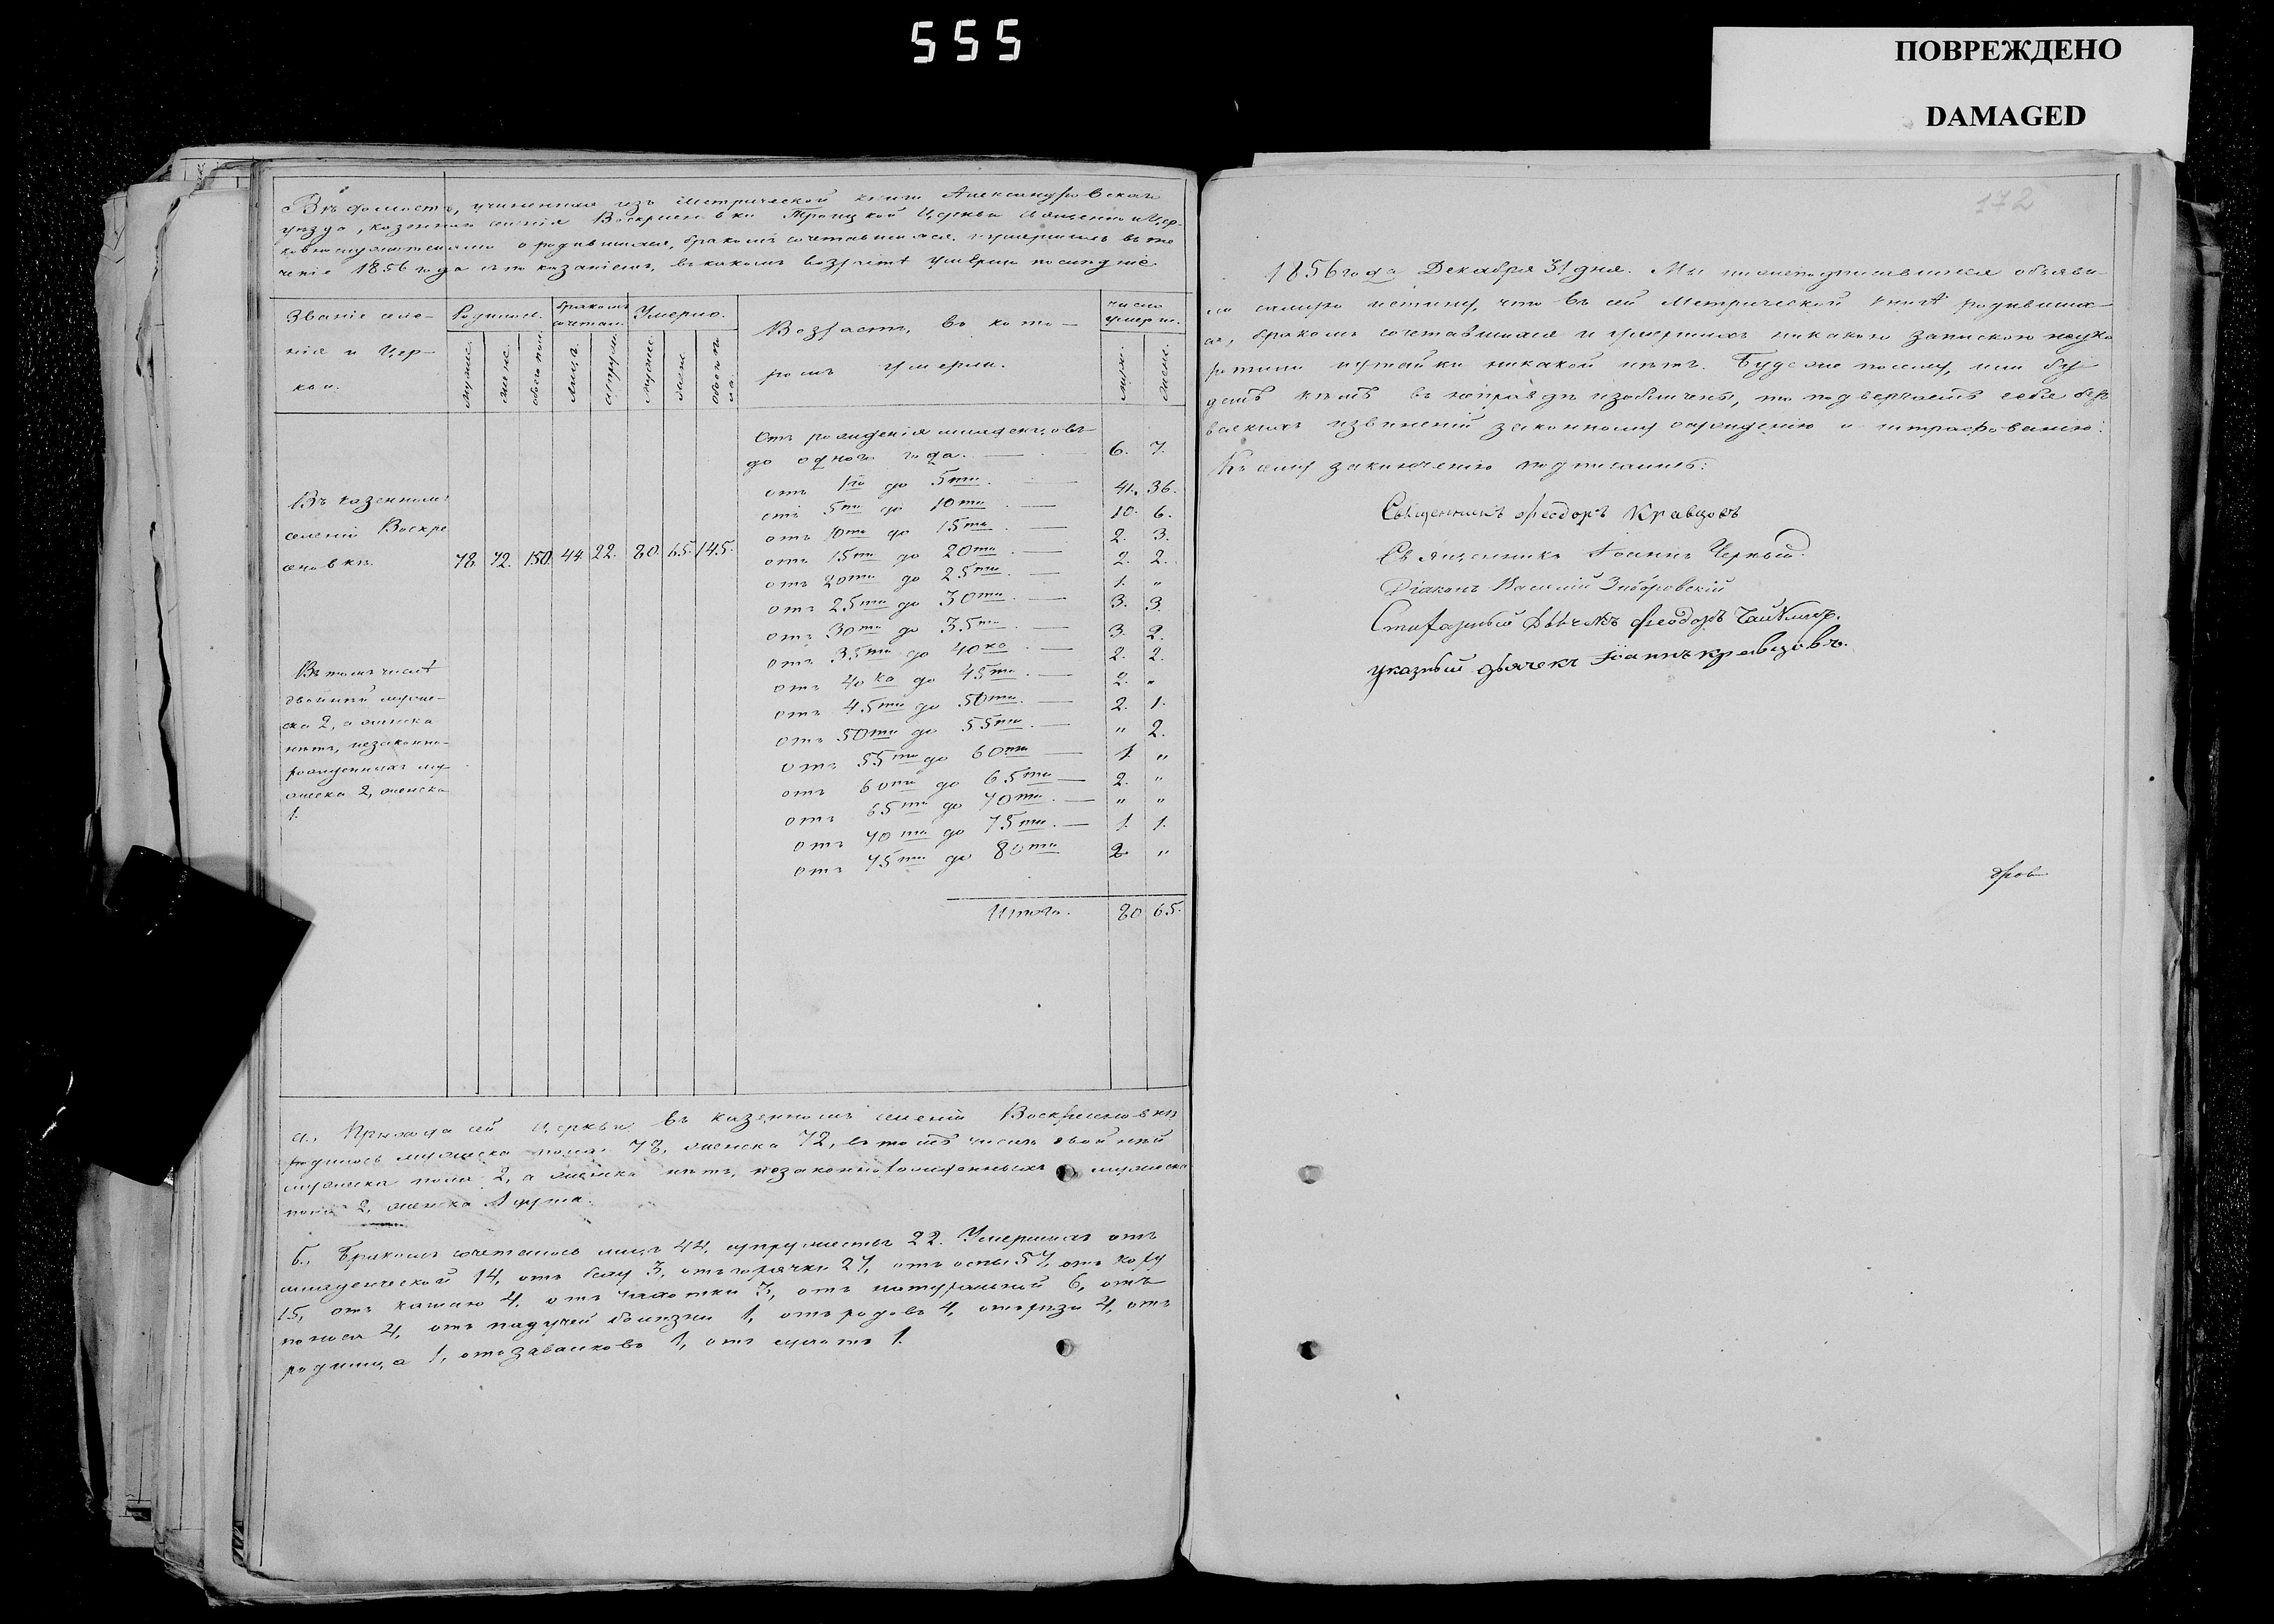 555
ПОВРЕЖДЕНО
DAMAGED
Вѣдомость, учиненная изъ Метрической книги Александровскаго
уѣзда, казеннаго селенія Воскресеновки Троицкой Церкви Священно и Цер-
ковнослужителями о родившихся, бракомъ сочетавшихся и умершихъ въ те
ченіе 1856 года съ показаніемъ, въ какомъ возрастѣ умерли послѣдніе.
Званіе селе-
нія и Цер-
кви.
Родилось.
Бракомъ сочетал.
Умерло.
Возрастъ, въ кото-
ромъ умерли.
число умерш.
мужс.
женс.
обоего пол.
лицъ.
супруж.
мужс.
женс.
обоего п
муж.
женс.
Въ казенномъ
селеніи Воскре
сеновкѣ.
78. 72. 150. 44. 22. 80. 65. 145.
Въ томъ числѣ
двойней муже-
ска 2, а женска
нѣтъ, незаконно-
рожденныхъ му
жеска 2, женска
1.
Отъ рожденія младенцовъ
до одного года. 6. 7.
отъ 1го до 5ти. 41. 36.
отъ 5ти до 10ти. 10. 6.
отъ 10ти до 15ти. 2. 3.
отъ 15ти до 20ти. 2. 2.
отъ 20ти до 25ти. 1. "
отъ 25ти до 30ти. 3. 3.
отъ 30ти до 35ти. 3. 2.
отъ 35ти до 40ка. 2. 2.
отъ 40ка до 45ти. 2. "
отъ 45ти до 50ти. 2. 1.
отъ 50ти до 55ти. " 2.
отъ 55ти до 60ти 1. "
отъ 60ти до 65ти 2. "
отъ 65ти до 70ти. " "
отъ 70ти до 75ти. 1. 1.
отъ 75ти до 80ти 2. "
Итого. 80 65.
а., Прихода сей Церкви въ казенномъ селеніи Воскресеновкѣ
родилось мужеска пола 78, женска 72, въ томъ числѣ двойней
мужеска пола 2, а женска нѣтъ, незаконнорожденныхъ мужеска
пола 2, женска 1 душа.
б., Бракомъ сочеталось лицъ 44, супружествъ 22. Умершихъ отъ
младенческой 14, отъ 3, отъ горячки 27, отъ оспы 57, отъ кору
15, отъ кашлю 4, отъ чахотки 3, отъ натуральной 6, отъ
поноса 4, отъ падучей болѣзни 1, отъ родовъ 4, отъ рѣзи 4, отъ
родимца 1, отъ завалковъ 1, отъ сухотъ 1.
172
1856 года Декабря 31 дня. Мы нижеподписавшіеся объяви-
ли самую истину, что въ сей Метрической книгѣ родивших-
ся, бракомъ сочетавшихся и умершихъ никакою запискою неуко
ротили и утайки никакой нѣтъ. Буде же посему, или бу
демъ кѣмъ въ неправдѣ изобличены, то подвергаемъ себя безъ
всякихъ извиненій законному осужденію и штрафованію.
Къ сему заключенію подписались:
Священникъ Феодоръ Кравцовъ
Священникъ Іоаннъ Черный.
Діаконъ Василій
Феодоръ
указный дьячекъ Іоаннъ Кравцовъ.